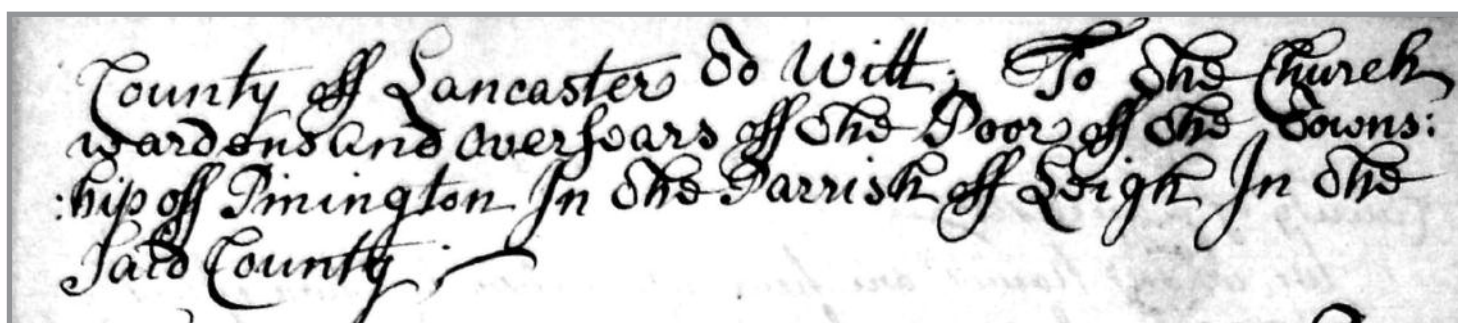 County off Lancaster to Witt; To the Church
wardens and oversears off the Poor off the Towns:
:hip off Pinington In the Parrish off Leigh In the
Said County.